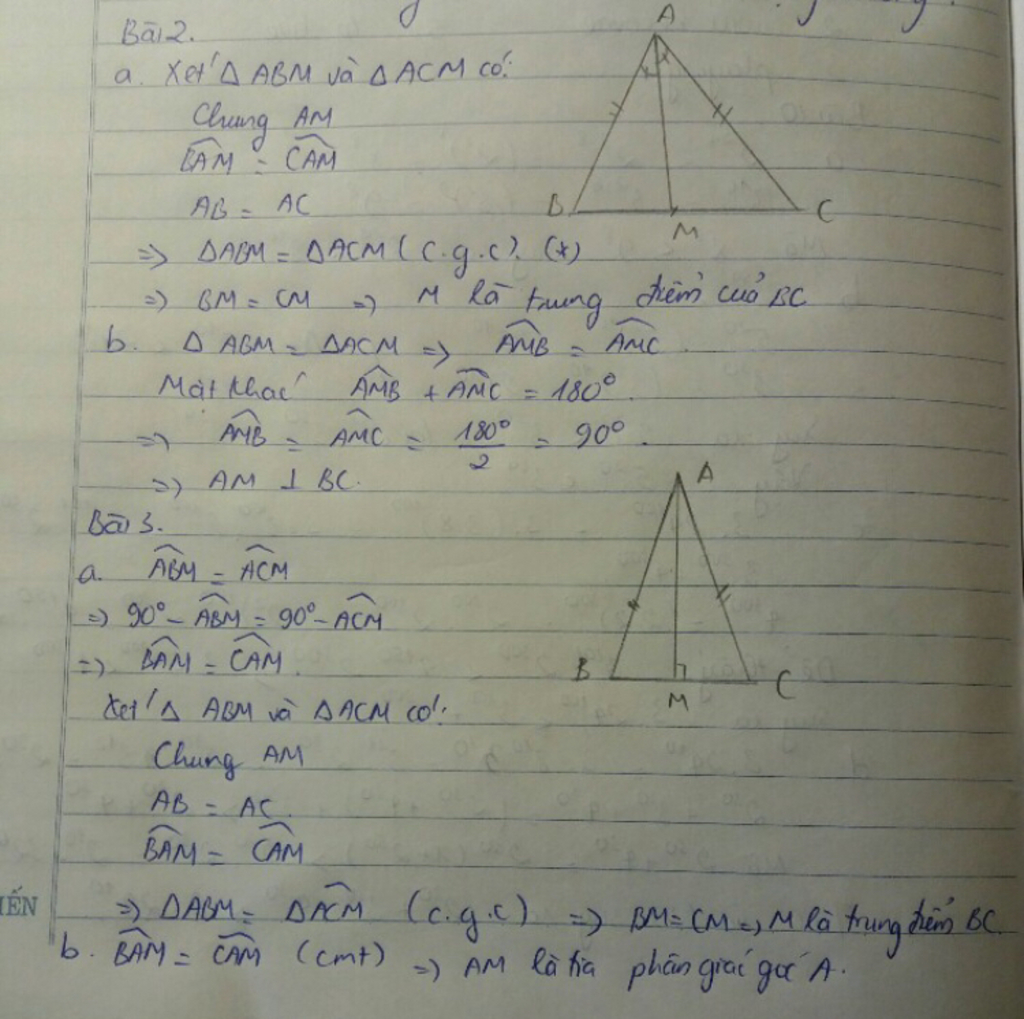 Bài 2.
a. Xét △ ABM và △ ACM có:
Chung AM
B̂AM = ĈAM
AB = AC
=> △ABM = △ACM (c.g.c). (*)
=> BM = CM => M là trung điểm của BC
b. △ ABM = △ACM => ÂMB = ÂMC.
Mặt khác ÂMB + ÂMC = 180°.
=> ÂMB = ÂMC = 180°/2 = 90°.
=> AM ⊥ BC.
A
B
M
C
Bài 3.
a. ÂBM = ÂCM
=> 90° - ÂBM = 90° - ÂCM
=> B̂AM = ĈAM.
Xét △ ABM và △ACM có:
Chung AM
AB = AC.
B̂AM = ĈAM
=> △ABM = △ÂCM (c.g.c) => BM = CM => M là trung điểm BC.
b. B̂AM = ĈAM (cmt) => AM là tia phân giác góc A.
A
B
M
C
IẾN